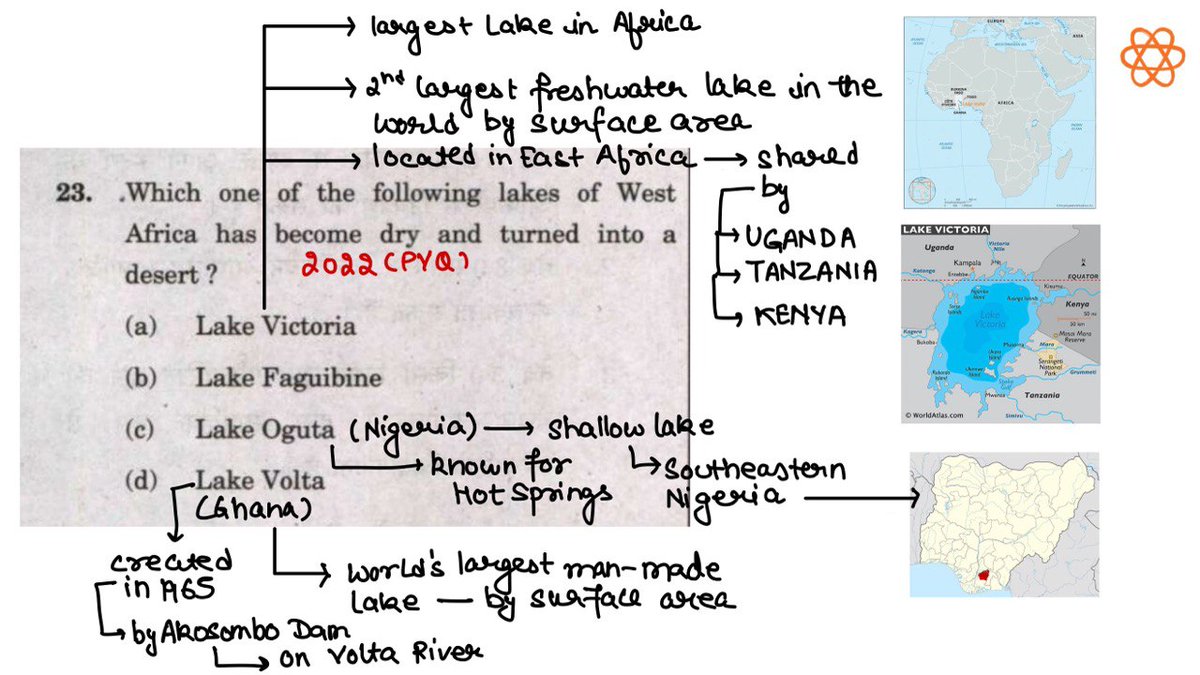 largest Lake in Africa
2nd largest freshwater lake in the
world by surface area
located in East Africa → shared
by
UGANDA
TANZANIA
KENYA
23. .Which one of the following lakes of West
Africa has become dry and turned into a
desert ?
2022 (PYQ)
(a) Lake Victoria
(b) Lake Faguibine
(c) Lake Oguta (Nigeria) → shallow lake
known for
Hot Springs
Southeastern
Nigeria
(d) Lake Volta
(Ghana)
created
in 1965
by Akosombo Dam
on Volta River
world's largest man-made
Lake — by surface area
EUROPE
ASIA
AFRICA
GHANA
LAKE VICTORIA
Uganda
Victoria
Nile
Kampala
Jinja
Entebbe
Katonga
EQUATOR
Kisumu
Kenya
50 mi
50 km
Masai Mara
Reserve
Lake
Victoria
Kagera
Bukoba
Musoma
Mara
Serengeti
National
Park
Grummeti
Mwanza
Tanzania
Simiyu
© WorldAtlas.com